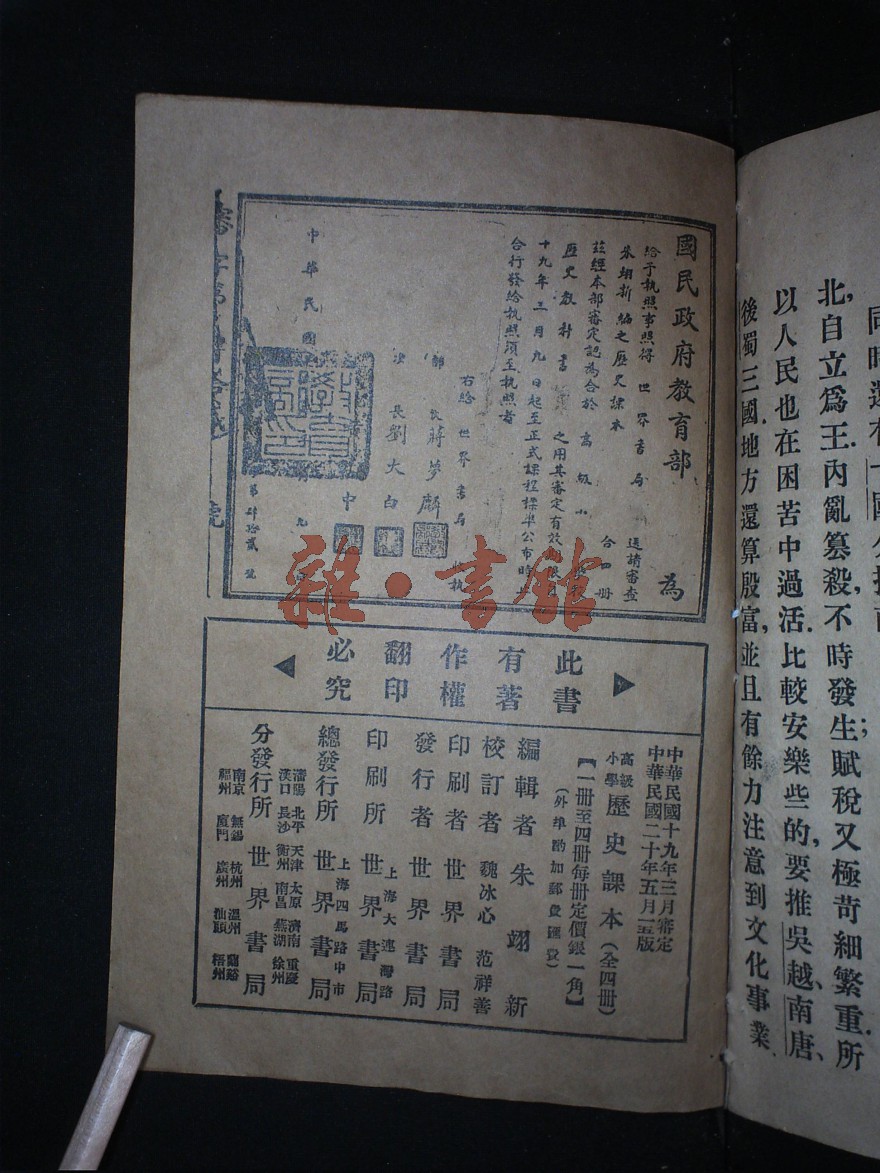 北，自立爲王．內亂篡殺，不時發生；賦稅又極苛細繁重．所
以人民也在困苦中過活．比較安樂些的，要推吳越、南唐、
後蜀三國．地方還算殷富，並且有餘力注意到文化事業．
國民政府教育部
為
給予執照事照得 世界書局 送請審查
朱翊新編之歷史課本 合四册
茲經本部審定認為合於 高級小
歷史教科書 之用其審定有效
十九年三月九日起至正式課程標準公布時
合行發給執照須至執照者
右給 世界書局
部長蔣夢麟
長劉大白
中華民國
第肆拾貳號
雜·書館
此書
有著
作權
翻印
必究
中華民國十九年三月審定
中華民國二十年五月一五版
高級小學 歷史課本（全四册）
【一册至四册每册定價銀一角】
（外埠酌加郵費匯費）
編輯者 朱翊新
校訂者 魏冰心 范祥善
印刷者 世界書局
發行者 世界書局
印刷所 上海大連灣路 世界書局
總發行所 上海四馬路中市 世界書局
瀋陽 北平 天津 太原 濟南 重慶
漢口 長沙 衡州 南昌 蕪湖 徐州
分發行所 世界書局
南京 無錫 杭州 溫州 蘭谿
福州 廈門 廣州 汕頭 梧州